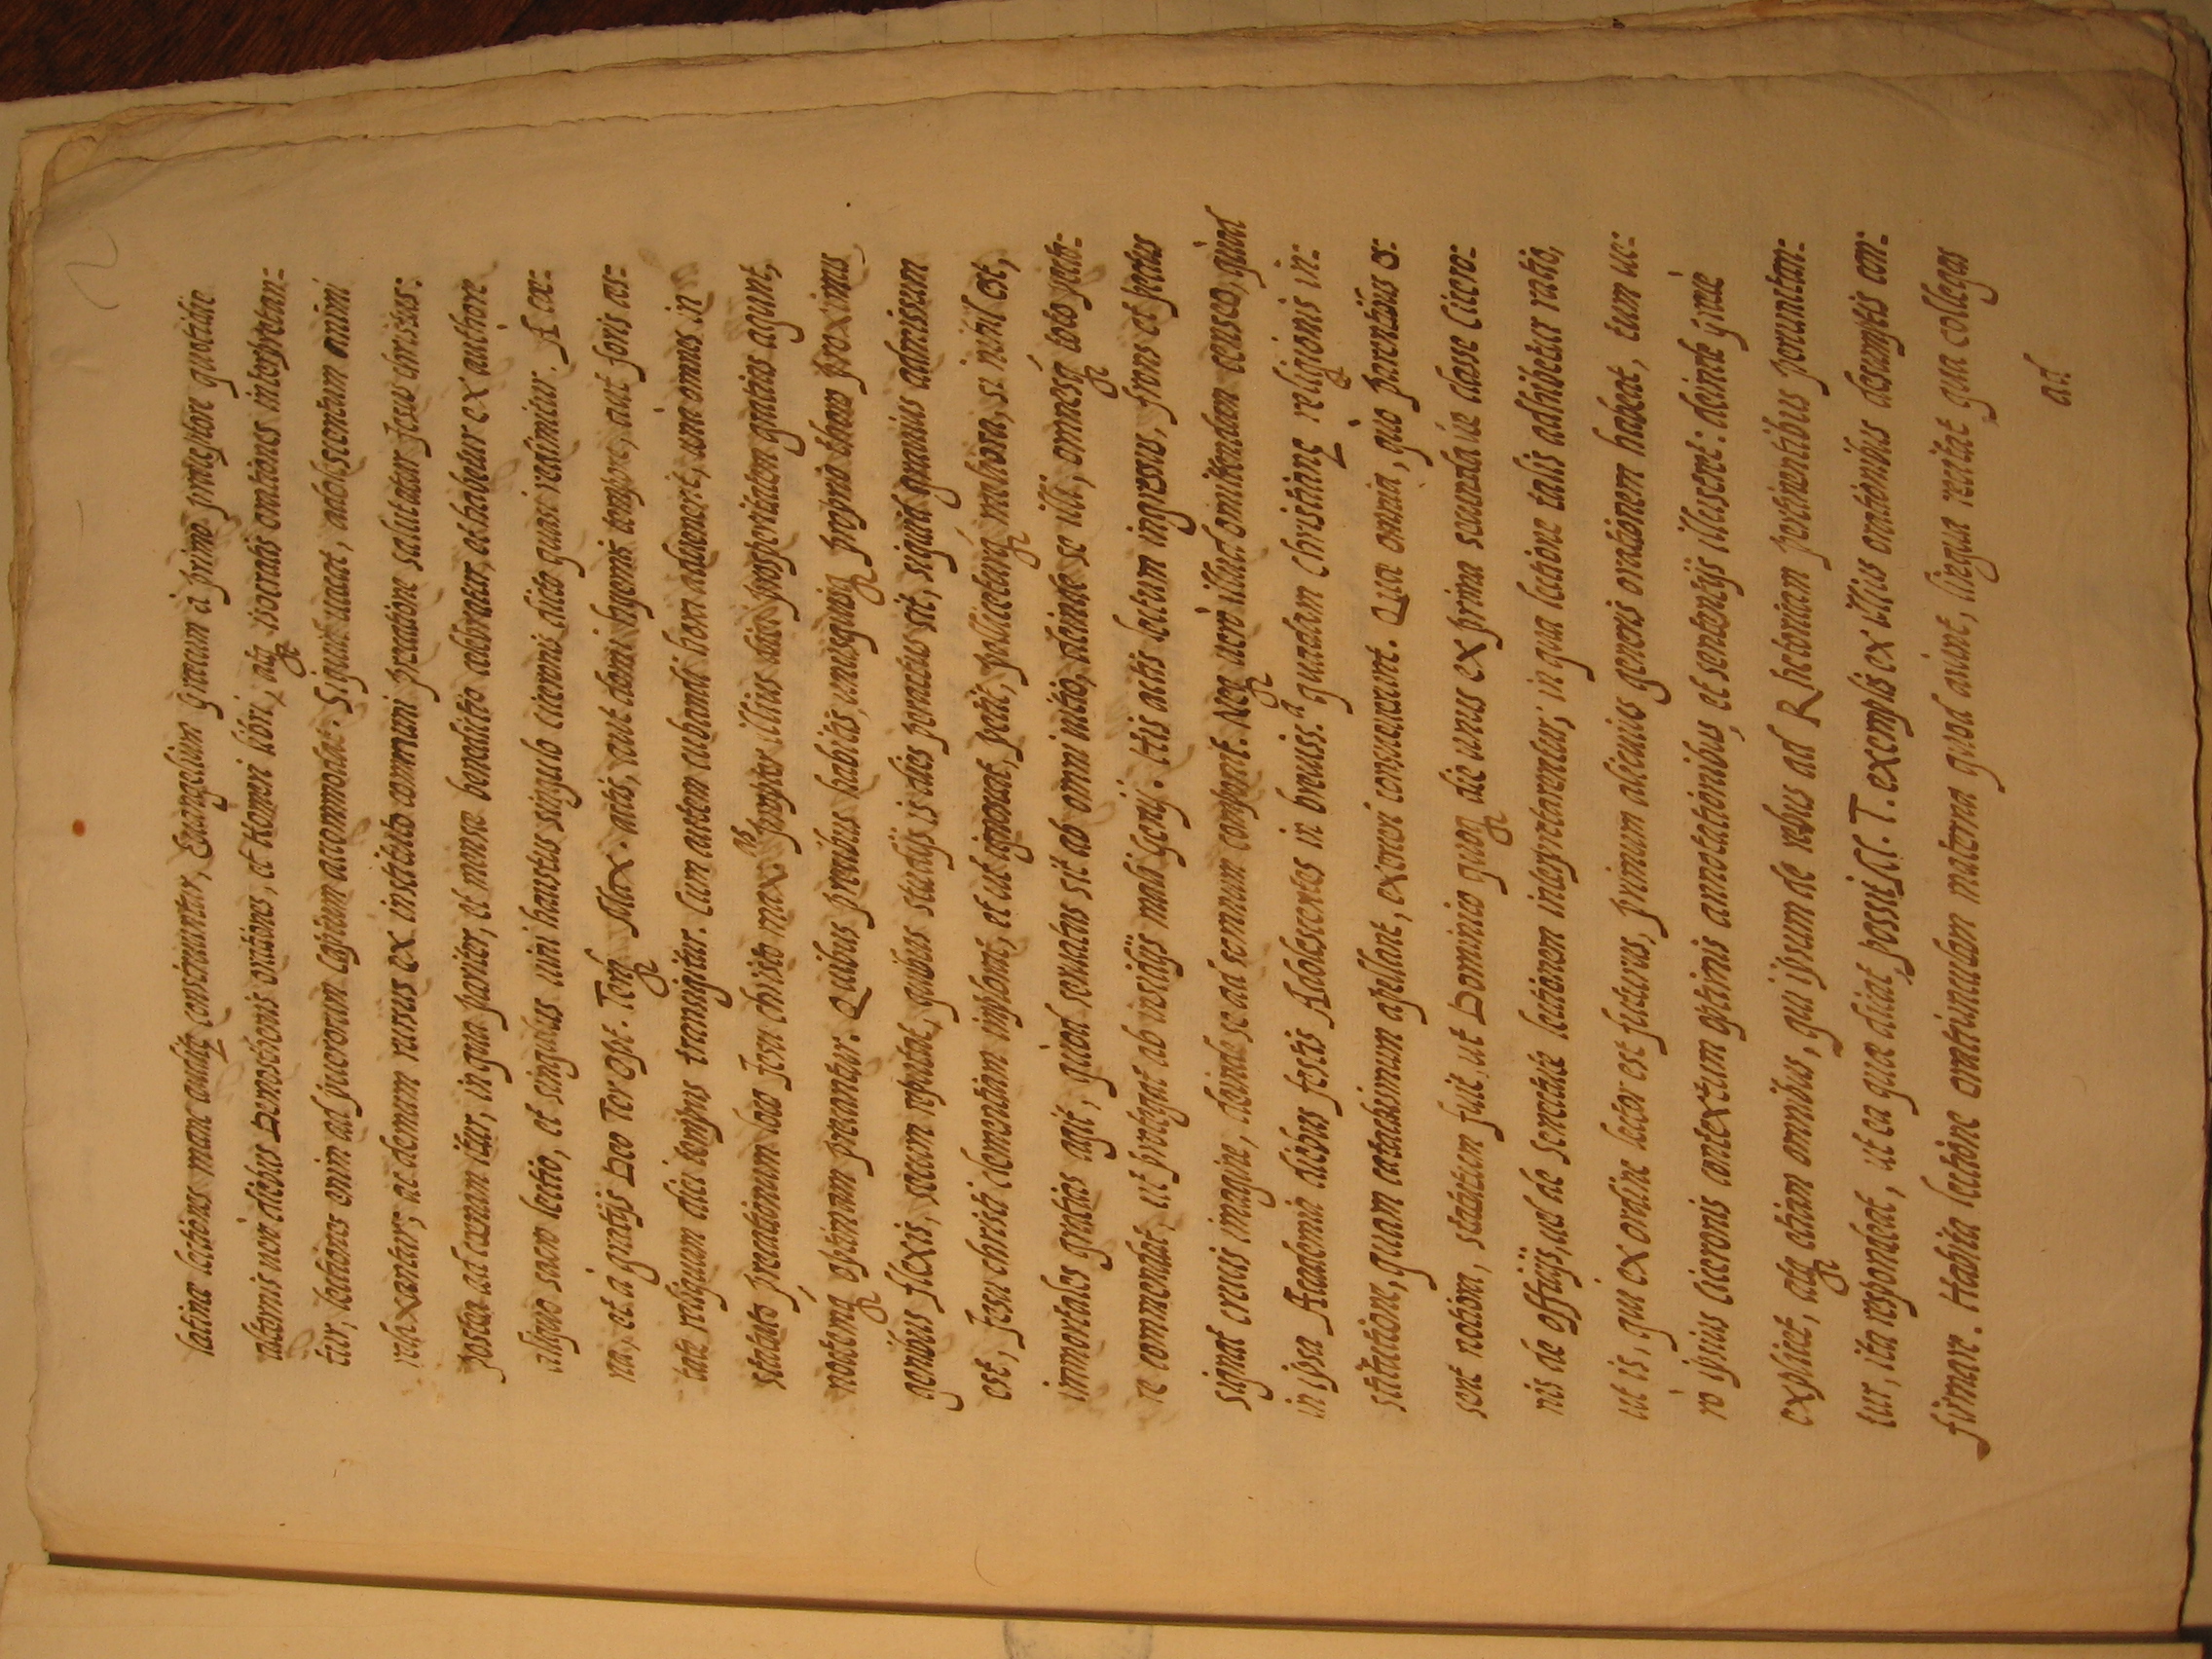 latinæ lectiones mane auditę consciuntur, Euangelium Græcum à primo præceptore quotidie
alternis uero diebus Demosthenis orationes, et Homeri libri, atq; isocratis orationes interpretan:
tur, lectiones enim ad puerorum captum accommodat. Siquid uacat, adolescentum animi
relaxantur, ac demum rursus ex instituto communi precatione salutatur Jesus christus:
postea ad cœnam itur, in qua pariter, et mensæ benedictio celebratur, et habetur ex authore
aliquo sacro lectio, et singulus uini haustus singulo ciceronis dicto quasi redimitur. A cœ:
na, et à gratijs Deo Ter Opt. Terq; Max. actis, aut domi hyemis tempore, aut foris æs:
tate reliquum diei tempus transigitur. Cum autem cubandi hora aduenerit, cum omnes in
statuto precationum loco Jesu christo max.as propter illius diei prosperitatem gratias agunt,
noctemq; optimam precantur. Quibus precibus habitis, unusquisq; proprio thoro proximus
genibus flexis, secum reputat, quibus studijs is dies peractus sit, siquid grauius admissum
est, Jesu christi clementiam implorat, et ut ignoscat, petit, polliceturq; meliora, si nihil est,
immortales gratias agit, quod seruatus sit ab omni uitio, deinde se illi, omnesq; toto pecto:
re commendat, ut protegat ab insidijs mali Genij. His actis lectum ingressus, frons et pectus
signat crucis imagine, deinde se ad somnum componit. Neq; uerò illud omittendum censeo, quòd
in ipsa Academia diebus festis Adolescentes in breuiss.a quadam christianę religionis in:
stitutione, quam catechismum apellant, exerceri consueuerunt. Quæ omnia, quo parentibus es:
sent notiora, statutum fuit, ut Dominico quoq; die unus ex prima secundáue classe Cicero:
nis de officijs, uel de senectute lectionem interpretaretur; in qua lectione talis adhibetur ratio,
ut is, qui ex ordine lector est futurus, primum alicuius generis orationem habeat, tum ue:
rò ipsius Ciceronis contextum optimis annotationibus, et sententijs illustret: deinde Græcè
explicet, atq; etiam omnibus, qui ipsum de rebus ad Rhetoricam pertinentibus percuntan:
tur, ita respondeat, ut ea quæ dicat, possit M. T. exemplis ex illius orationibus desumptis con:
firmare. Habita lectione oratiunculam materna quod aiunt, lingua recitat qua collegas
ad